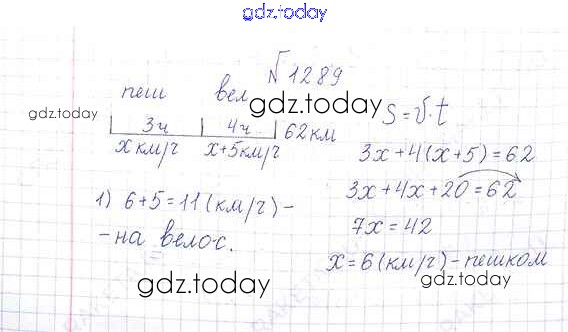 gdz.today
№1289
пеш вел
gdz.today
gdz.today
3ч 4ч 62км
x км/г x+5км/г
S=v·t
3x+4(x+5)=62
3x+4x+20=62
7x=42
x=6(км/г)-пешком
1) 6+5=11(км/г)-
-на велос.
gdz.today
gdz.today